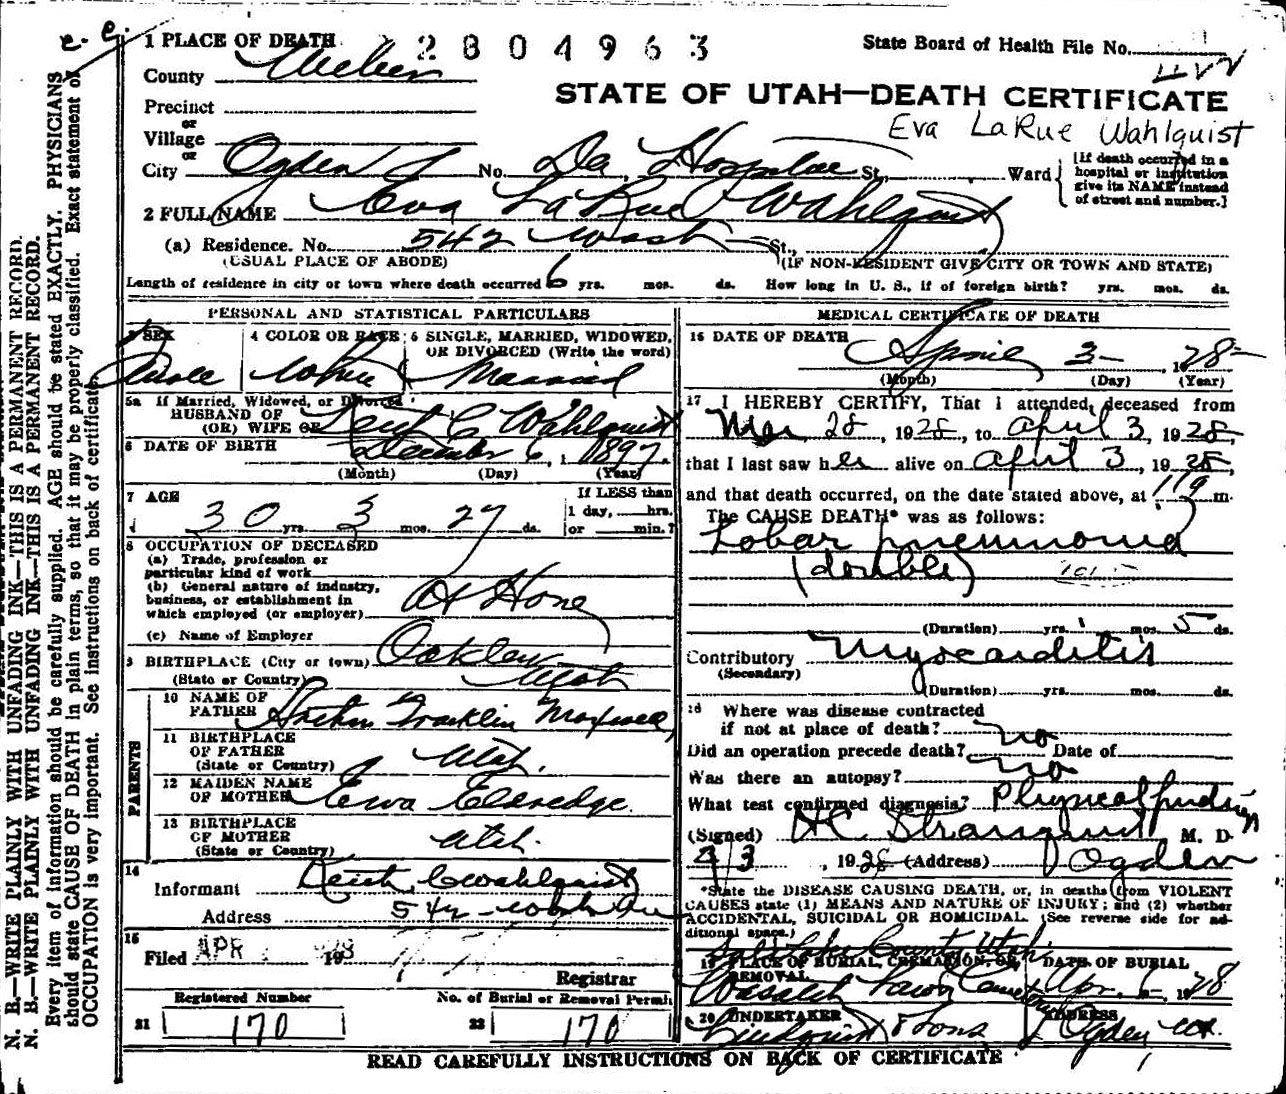 c. c.
1 PLACE OF DEATH 2804963 State Board of Health File No.
County Weber
STATE OF UTAH—DEATH CERTIFICATE
Precinct
Eva LaRue Wahlquist
or
Village
or
City Ogden No. Dee Hospital St., Ward
[If death occurred in a hospital or institution give its NAME instead of street and number.]
2 FULL NAME Eva LaRue Wahlquist
(a) Residence. No. 542 Wash St.,
(USUAL PLACE OF ABODE) (IF NON-RESIDENT GIVE CITY OR TOWN AND STATE)
Length of residence in city or town where death occurred 6 yrs. mos. ds. How long in U. S., if of foreign birth? yrs. mos. ds.
PERSONAL AND STATISTICAL PARTICULARS
3 SEX
4 COLOR OR RACE White
5 SINGLE, MARRIED, WIDOWED,
OR DIVORCED (Write the word)
Married
5a If Married, Widowed, or Divorced
HUSBAND OF
(OR) WIFE OF C Wahlquist
6 DATE OF BIRTH December 6, 1897
(Month) (Day) (Year)
7 AGE
30 yrs. 3 mos. 27 ds.
If LESS than
1 day, hrs.
or min.?
8 OCCUPATION OF DECEASED
(a) Trade, profession or
particular kind of work
(b) General nature of industry,
business, or establishment in
which employed (or employer) At Home
(c) Name of Employer
9 BIRTHPLACE (City or town) Oakley
(State or Country) Utah
PARENTS
10 NAME OF
FATHER Arthur Franklin Maxwell
11 BIRTHPLACE
OF FATHER
(State or Country) Utah.
12 MAIDEN NAME
OF MOTHER Eldredge.
13 BIRTHPLACE
OF MOTHER
(State or Country) Utah.
14
Informant C Wahlquist
Address 542 Wash Ave
15
Filed APR
Registrar
Registered Number No. of Burial or Removal Permit
21 170 22 170
MEDICAL CERTIFICATE OF DEATH
16 DATE OF DEATH
April 3 - , 1928
(Month) (Day) (Year)
17 I HEREBY CERTIFY, That I attended deceased from
Mar 28, 1928, to April 3, 1928,
that I last saw her alive on April 3, 1928,
and that death occurred, on the date stated above, at m.
The CAUSE DEATH* was as follows:
Lobar pneumonia
(double)
101
(Duration) yrs. mos. 5 ds.
Contributory Myocarditis
(Secondary)
(Duration) yrs. mos. ds.
18 Where was disease contracted
if not at place of death?
Did an operation precede death? no Date of
Was there an autopsy? no
What test confirmed diagnosis? Physical findings
(Signed) HC Stranquist M. D.
4/3, 1928 (Address) Ogden
*State the DISEASE CAUSING DEATH, or, in deaths from VIOLENT
CAUSES state (1) MEANS AND NATURE OF INJURY; and (2) whether
ACCIDENTAL, SUICIDAL OR HOMICIDAL. (See reverse side for ad-
ditional space.)
Salt Lake County Utah
19 PLACE OF BURIAL, CREMATION, OR
REMOVAL
Wasatch Lawn Cemetery
DATE OF BURIAL
Apr. 6 - 1928
20 UNDERTAKER
Lindquist & Sons
ADDRESS
Ogden Ut.
READ CAREFULLY INSTRUCTIONS ON BACK OF CERTIFICATE
N. B.—WRITE PLAINLY WITH UNFADING INK—THIS IS A PERMANENT RECORD.
N. B.—WRITE PLAINLY WITH UNFADING INK—THIS IS A PERMANENT RECORD.
Every item of information should be carefully supplied. AGE should be stated EXACTLY. PHYSICIANS
should state CAUSE OF DEATH in plain terms, so that it may be properly classified. Exact statement of
OCCUPATION is very important. See instructions on back of certificate.